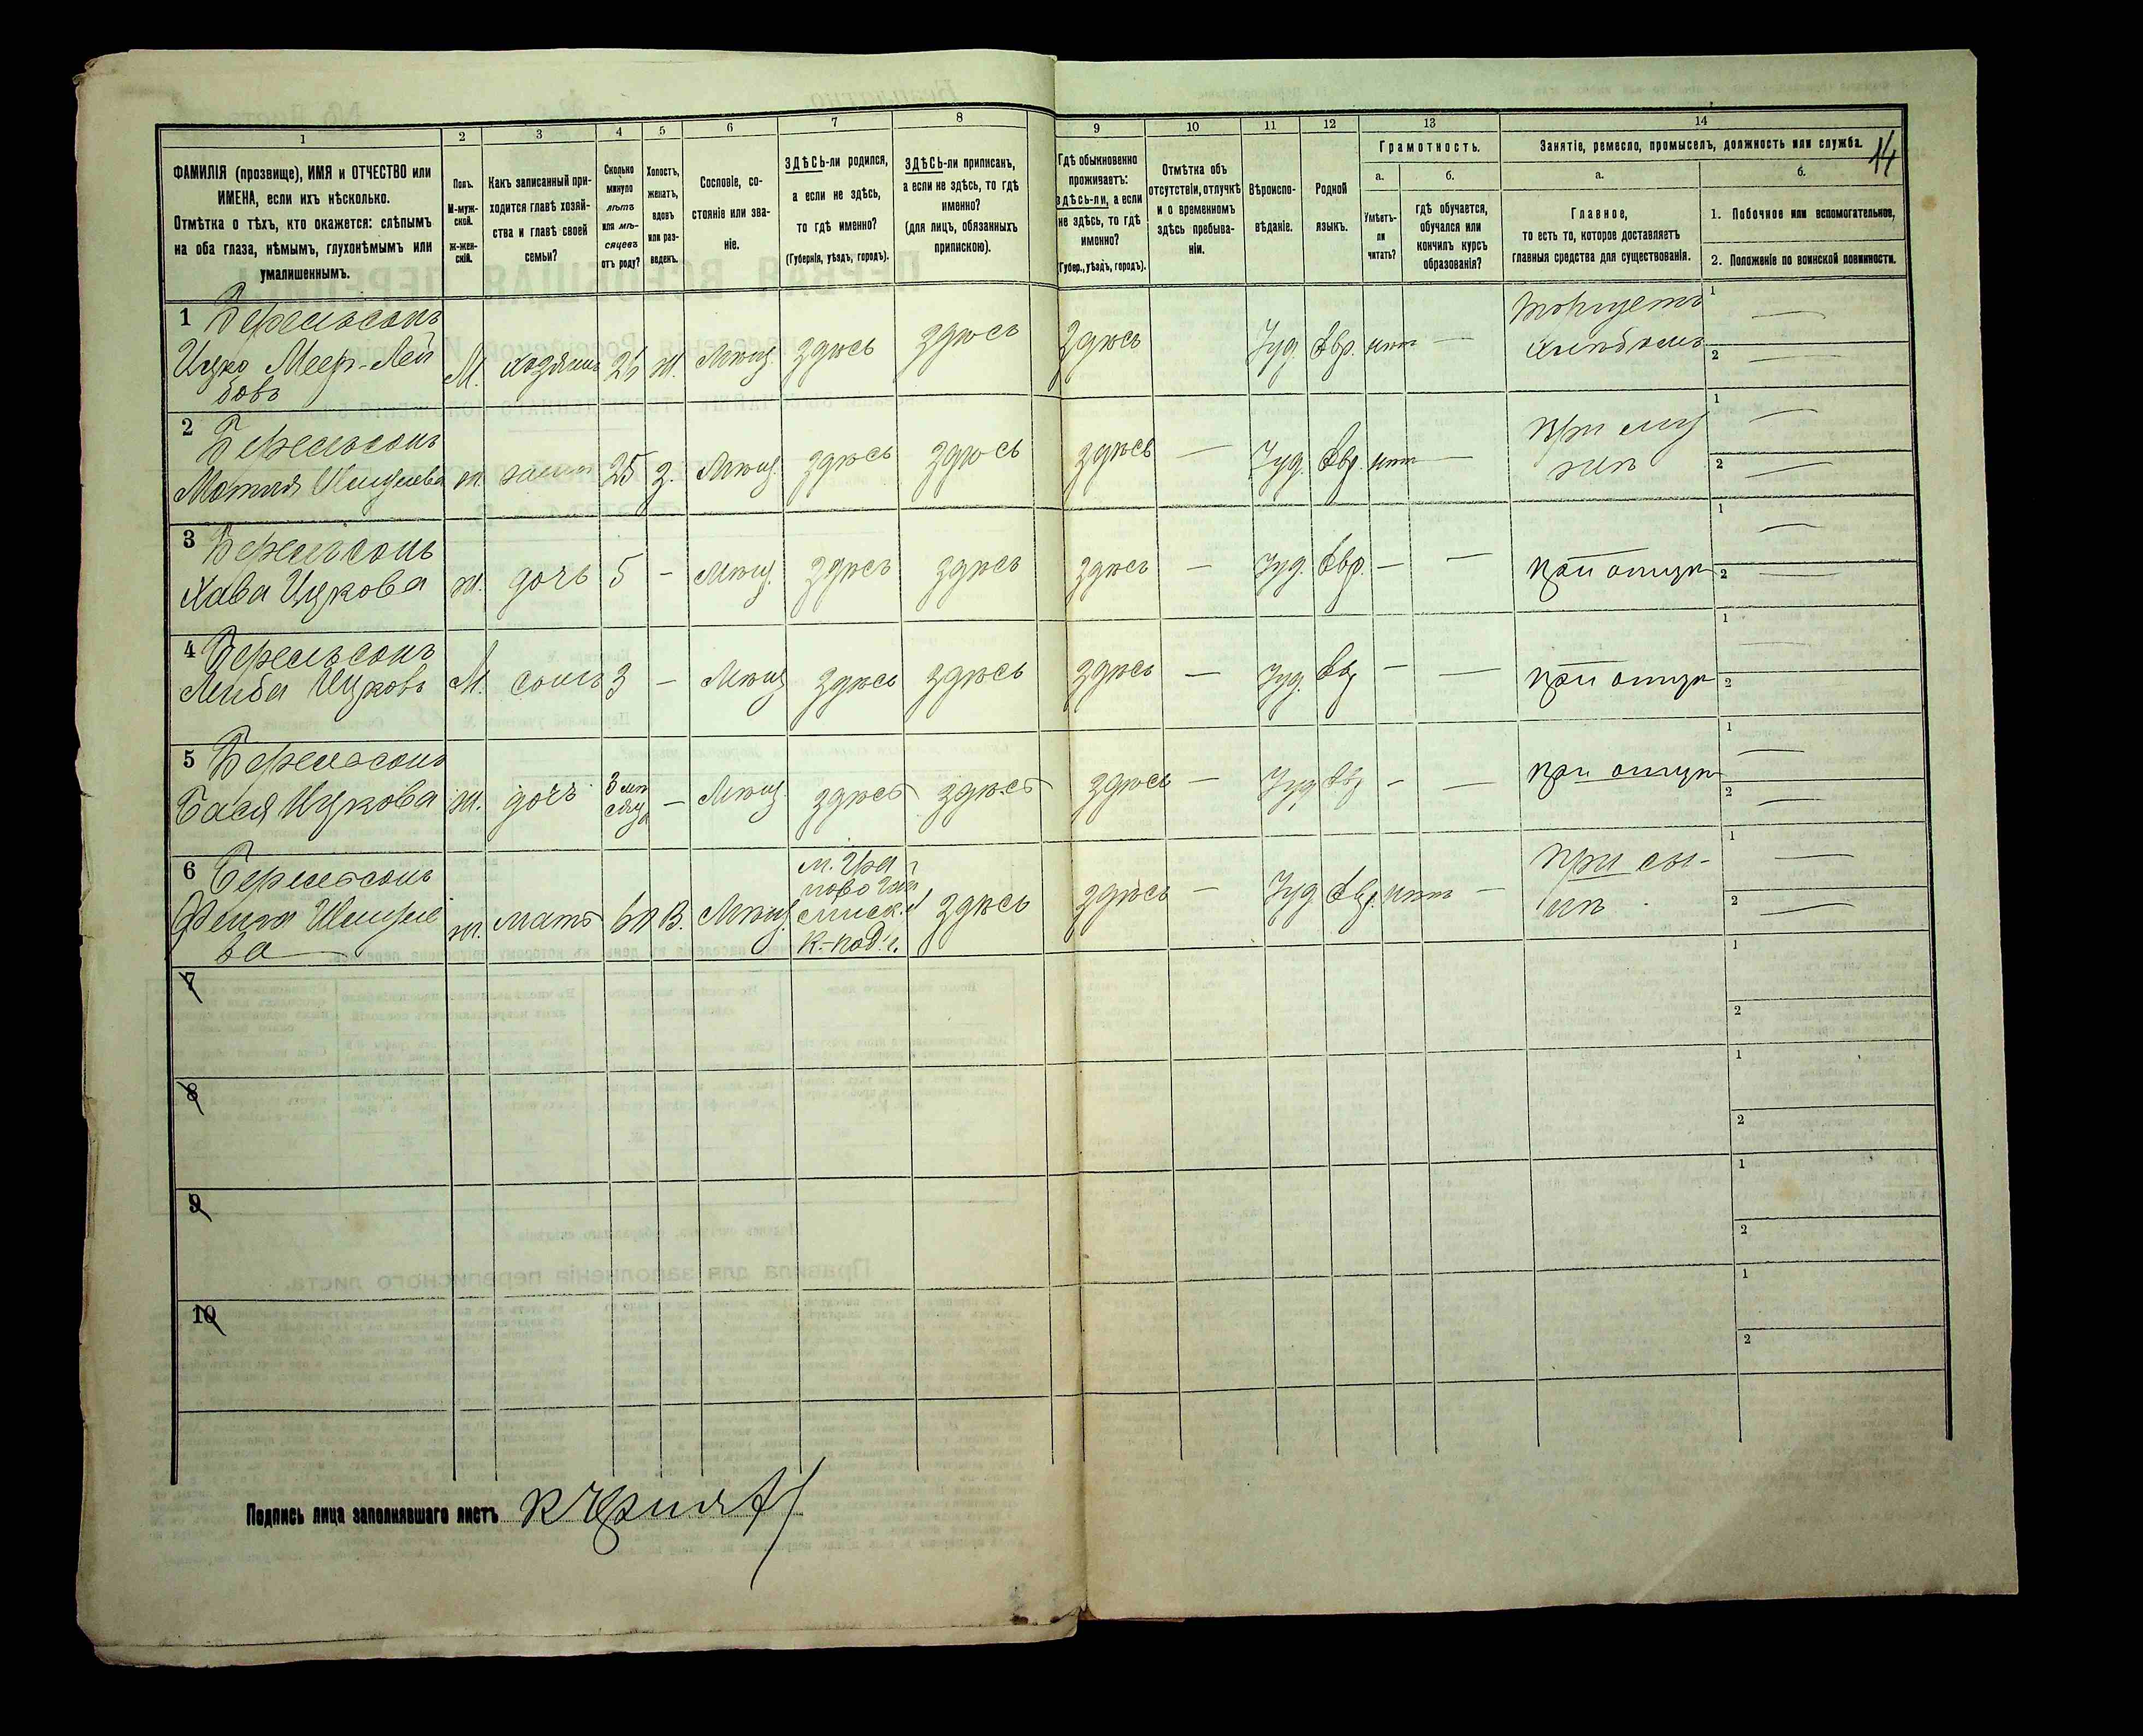 1
2
3
4
5
6
7
8
ФАМИЛІЯ (прозвище), ИМЯ и ОТЧЕСТВО или
ИМЕНА, если ихъ нѣсколько.
Отмѣтка о тѣхъ, кто окажется: слѣпымъ
на оба глаза, нѣмымъ, глухонѣмымъ или
умалишеннымъ.
Полъ.
М-муж-
ской.
Ж-жен-
скій.
Какъ записанный при-
ходится главѣ хозяй-
ства и главѣ своей
семьи?
Сколько
минуло
лѣтъ
или мѣ-
сяцевъ
отъ роду?
Холостъ,
женатъ,
вдовъ
или раз-
веденъ.
Сословіе, со-
стояніе или зва-
ніе.
ЗДѢСЬ-ли родился,
а если не здѣсь,
то гдѣ именно?
(Губернія, уѣздъ, городъ).
ЗДѢСЬ-ли приписанъ,
а если не здѣсь, то гдѣ
именно?
(для лицъ, обязанныхъ
припискою).
9
10
11
12
13
14
Гдѣ обыкновенно
проживаетъ:
здѣсь-ли, а если
не здѣсь, то гдѣ
именно?
(Губер., уѣздъ, городъ).
Отмѣтка объ
отсутствіи, отлучкѣ
и о временномъ
здѣсь пребыва-
ніи.
Вѣроиспо-
вѣданіе.
Родной
языкъ.
Грамотность.
а.
б.
Умѣетъ-
ли
читать?
гдѣ обучается,
обучался или
кончилъ курсъ
образованія?
Занятіе, ремесло, промыселъ, должность или служба.
14
а.
б.
Главное,
то есть то, которое доставляетъ
главныя средства для существованія.
1. Побочное или вспомогательное,
2. Положеніе по воинской повинности.
1 Берельсонъ
Ицко Меер-Лей
бовъ
М. хозяинъ ж. Мѣщ. здѣсь здѣсь здѣсь Іуд. Евр. нѣт —
торгуетъ
хлѣбомъ
1 —
2 —
2 Берельсонъ
Мотля
ж. жена 25 з. Мѣщ. здѣсь здѣсь здѣсь — Іуд. Евр. нѣт —
при му
жѣ
1 —
2 —
3 Берельсонъ
Хава Ицкова
ж. дочь 5 — Мѣщ. здѣсь здѣсь здѣсь — Іуд. Евр. — —
при отцѣ
1 —
2 —
4 Берельсонъ
Лейба Ицковъ
М. сынъ 3 — Мѣщ здѣсь здѣсь здѣсь — Іуд. Евр — —
при отцѣ
1 —
2 —
5 Берельсонъ
Бася Ицкова
ж. дочь
3 мѣ
сяца
— Мѣщ. здѣсь здѣсь здѣсь — Іуд Евр — —
при отцѣ
1 —
2 —
6 Берельсонъ
ва
ж. мать в. Мѣщ.
К.-под. г.
здѣсь здѣсь — Іуд Евр. нѣт —
при сы-
нѣ
1 —
2 —
7
1
2
8
1
2
9
1
2
10
1
2
Подпись лица заполнявшаго листъ